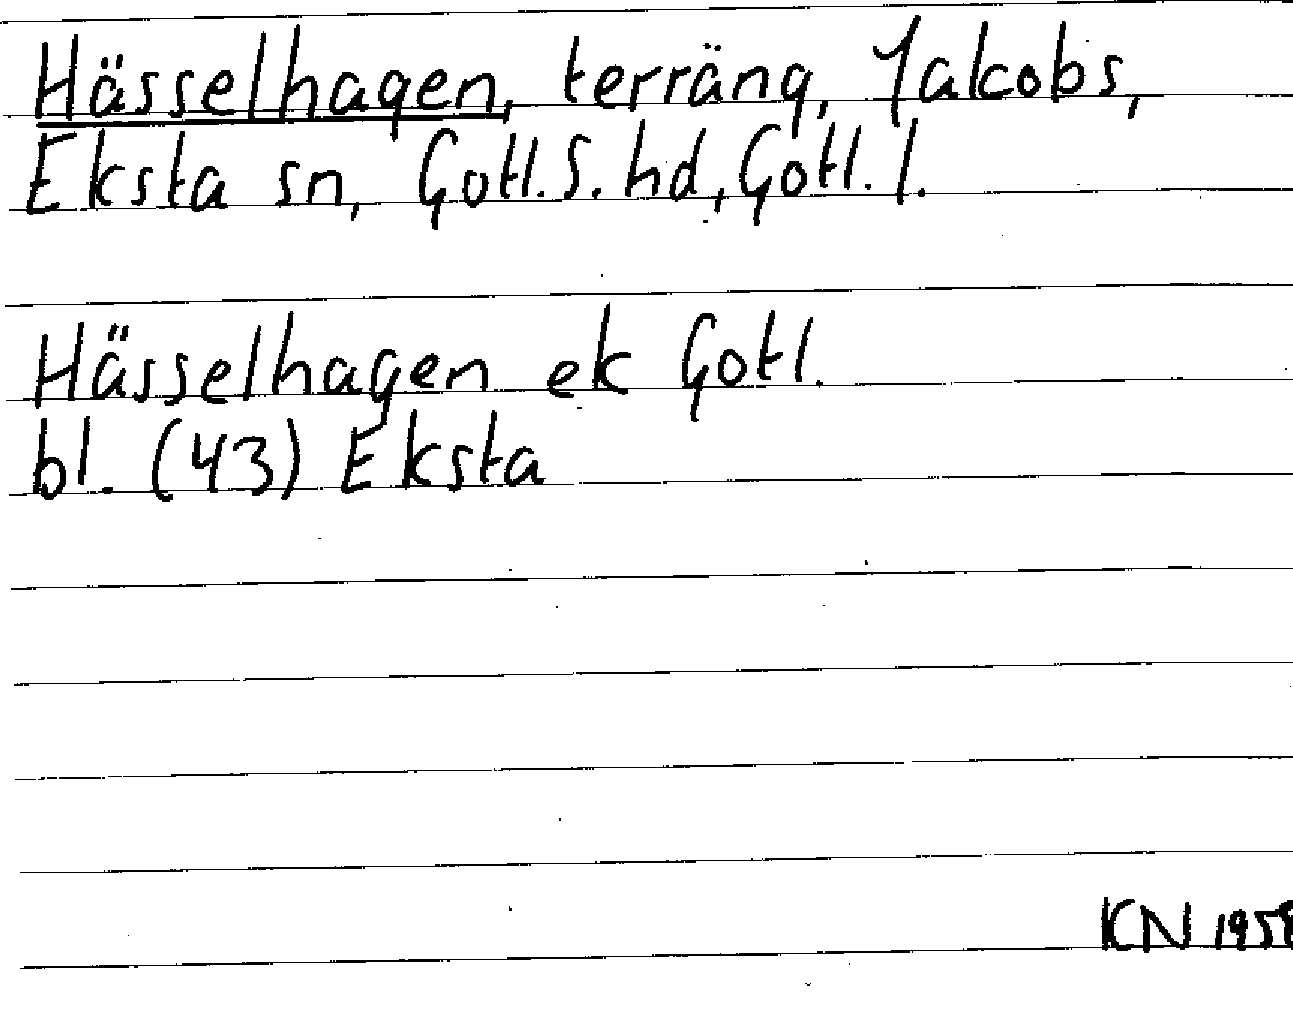 Hässelhagen, terräng, Jakobs,
Eksta sn, Gotl. S. hd, Gotl. l.
Hässelhagen ek Gotl.
bl. (43) Eksta
KN